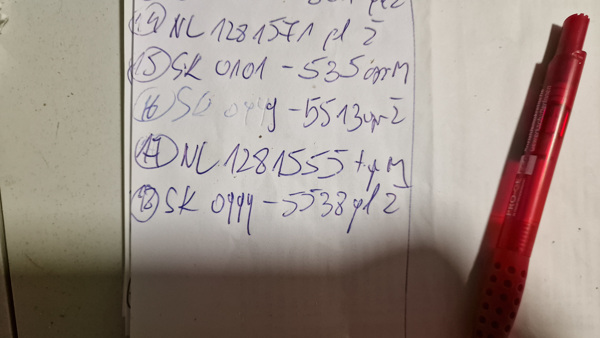 14 NL 1281571 pl Ž
15 SK 0101 - 535 M
16 SK 0999 - 5513 Ž
17 NL 1281555 M
18 SK 0999 - 5538 pl Ž